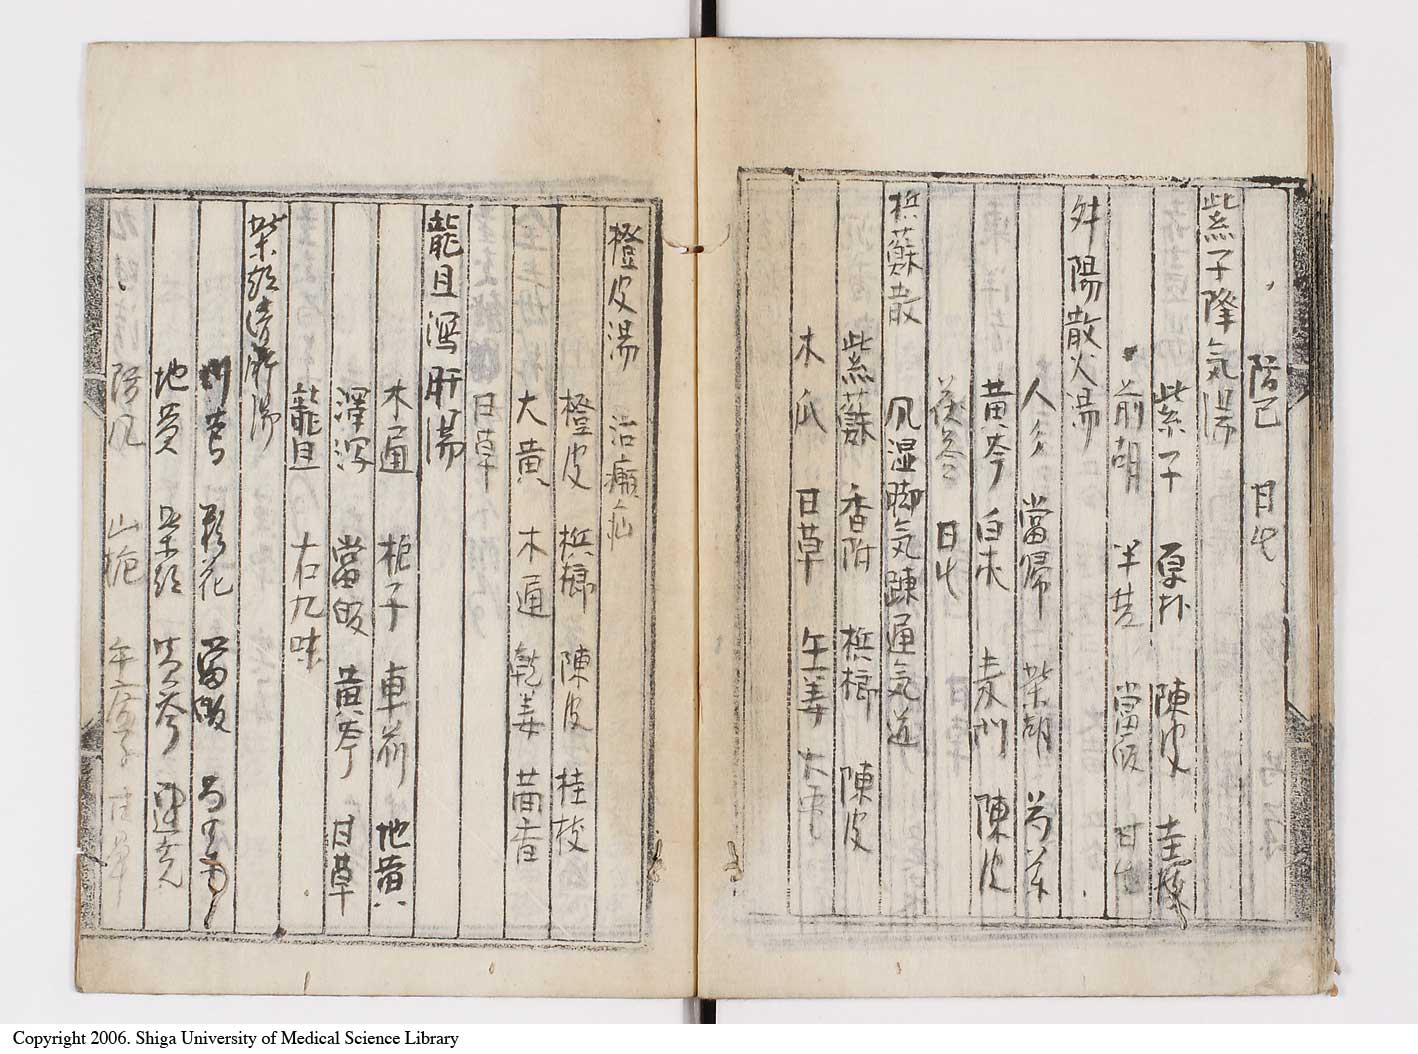 防已 甘屮
紫子降気湯
紫子 厚朴 陳皮
前胡 半 當皈 甘屮
舛陽散火湯
人参 當帰 柴胡 芍薬
黄芩 白朮 麦門 陳皮
茯苓 甘屮
梹蘇散 风湿脚気疎通気道
紫蘇 香附 梹榔 陳皮
木瓜 甘草 生姜
橙皮湯 治㿗疝
橙皮 梹榔 陳皮 桂枝
大黄 木通 乾姜 茴香
甘草
龍胆瀉肝湯
木通 梔子 車前 地黄
澤瀉 當皈 黄芩 甘草
龍胆 右九味
柴胡清肝湯
川芎 花 當皈
地黄 柴胡 黄芩 連壳
防风 山梔 甘草
Copyright 2006. Shiga University of Medical Science Library